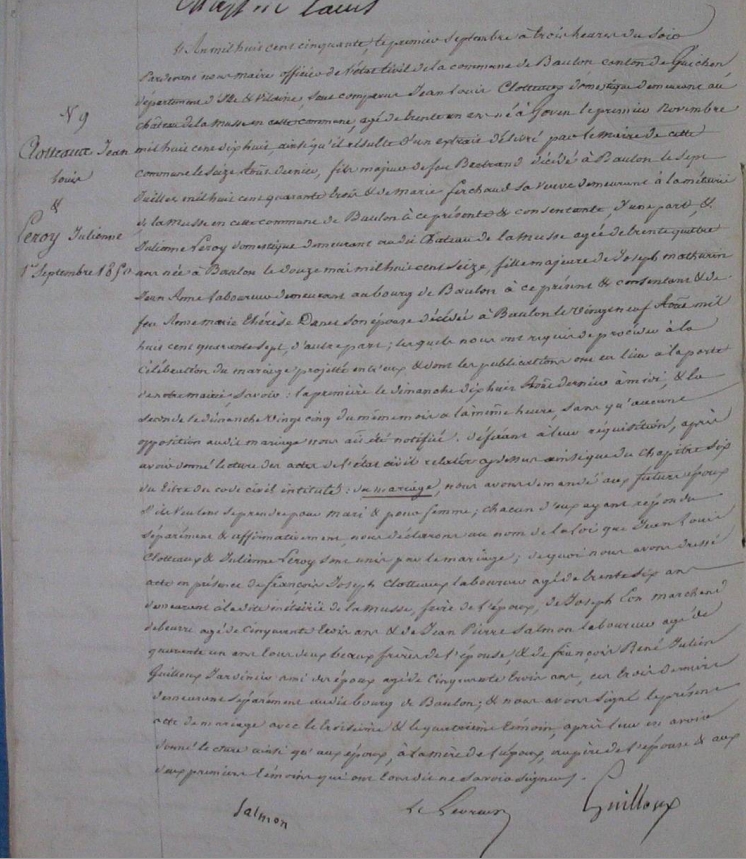 N 9
Clotteaux Jean
louis
&
Leroy Julienne
1er Septembre 1850
L'An mil huit cent cinquante, le premier Septembre à trois heures du soir
Pardevant nous maire officier de l'état Civil de la commune de Baulon canton de Guichen
département d'Ille & Vilaine, sont comparus Jean louis Clotteaux domestique demeurant au
château de la Musse en cette commune, agé de trente un ans né à Goven le premier Novembre
mil huit cent dix huit, ainsi qu'il résulte d'un extrait délivré par le Maire de cette
commune le seize Août dernier, fils majeur de feu Bertrand décédé à Baulon le sept
Juillet mil huit cent quarante trois & de marie Ferchaud sa veuve demeurant à la métairie
de la Musse en cette commune de Baulon à ce présente & consentante, d'une part, &
Julienne Leroy domestique demeurant audit Château de la Musse agée de trente quatre
ans née à Baulon le douze mai mil huit cent seize, fille majeure de Joseph mathurin
Jean Anne laboureur demeurant au bourg de Baulon à ce présent & consentant & de
feu Anne marie Thérèse Danet son épouse décédée à Baulon le vingt neuf Août mil
huit cent quarante sept, d'autre part ; lesquels nous ont requis de procéder à la
célébration du mariage projetté entr'eux & dont les publications ont eu lieu à la porte
de notre mairie, savoir : la première le dimanche dix huit Août dernier à midi, & la
seconde le dimanche vingt cinq du même mois à la même heure, sans qu'aucune
opposition audit mariage nous ait été notifiée. Déférant à leur réquisition, après
avoir donné lecture des actes de l'état civil relatés ci-dessus ainsi que du Chapitre six
du titre du code civil intitulé : du mariage, nous avons demandé aux futurs époux
s'ils veulent se prendre pour mari & pour femme ; chacun d'eux ayant répondu
séparément & affirmativement, nous déclarons au nom de la loi que Jean louis
Clotteaux & Julienne Leroy sont unis par le mariage ; de quoi nous avons dressé
acte en présence de françois Joseph Clotteaux laboureur agé de trente six ans
demeurant à la dite métairie de la Musse, frère de l'époux, de Joseph marchand
de beurre agé de Cinquante trois ans & de Jean Pierre Salmon laboureur agé de
quarante un ans tous deux beaux frères de l'épouse, & de françois René Julien
Guilloux Jardinier ami des époux agé de Cinquante trois ans, ces trois derniers
demeurant séparément audit bourg de Baulon ; & nous avons signé le présent
acte de mariage avec le troisième & le quatrième témoin, après leur en avoir
donné lecture ainsi qu'aux époux, à la mère de l'époux, au père de l'épouse & aux
deux premiers témoins qui ont tous dit ne savoir signer.
Salmon
Guilloux